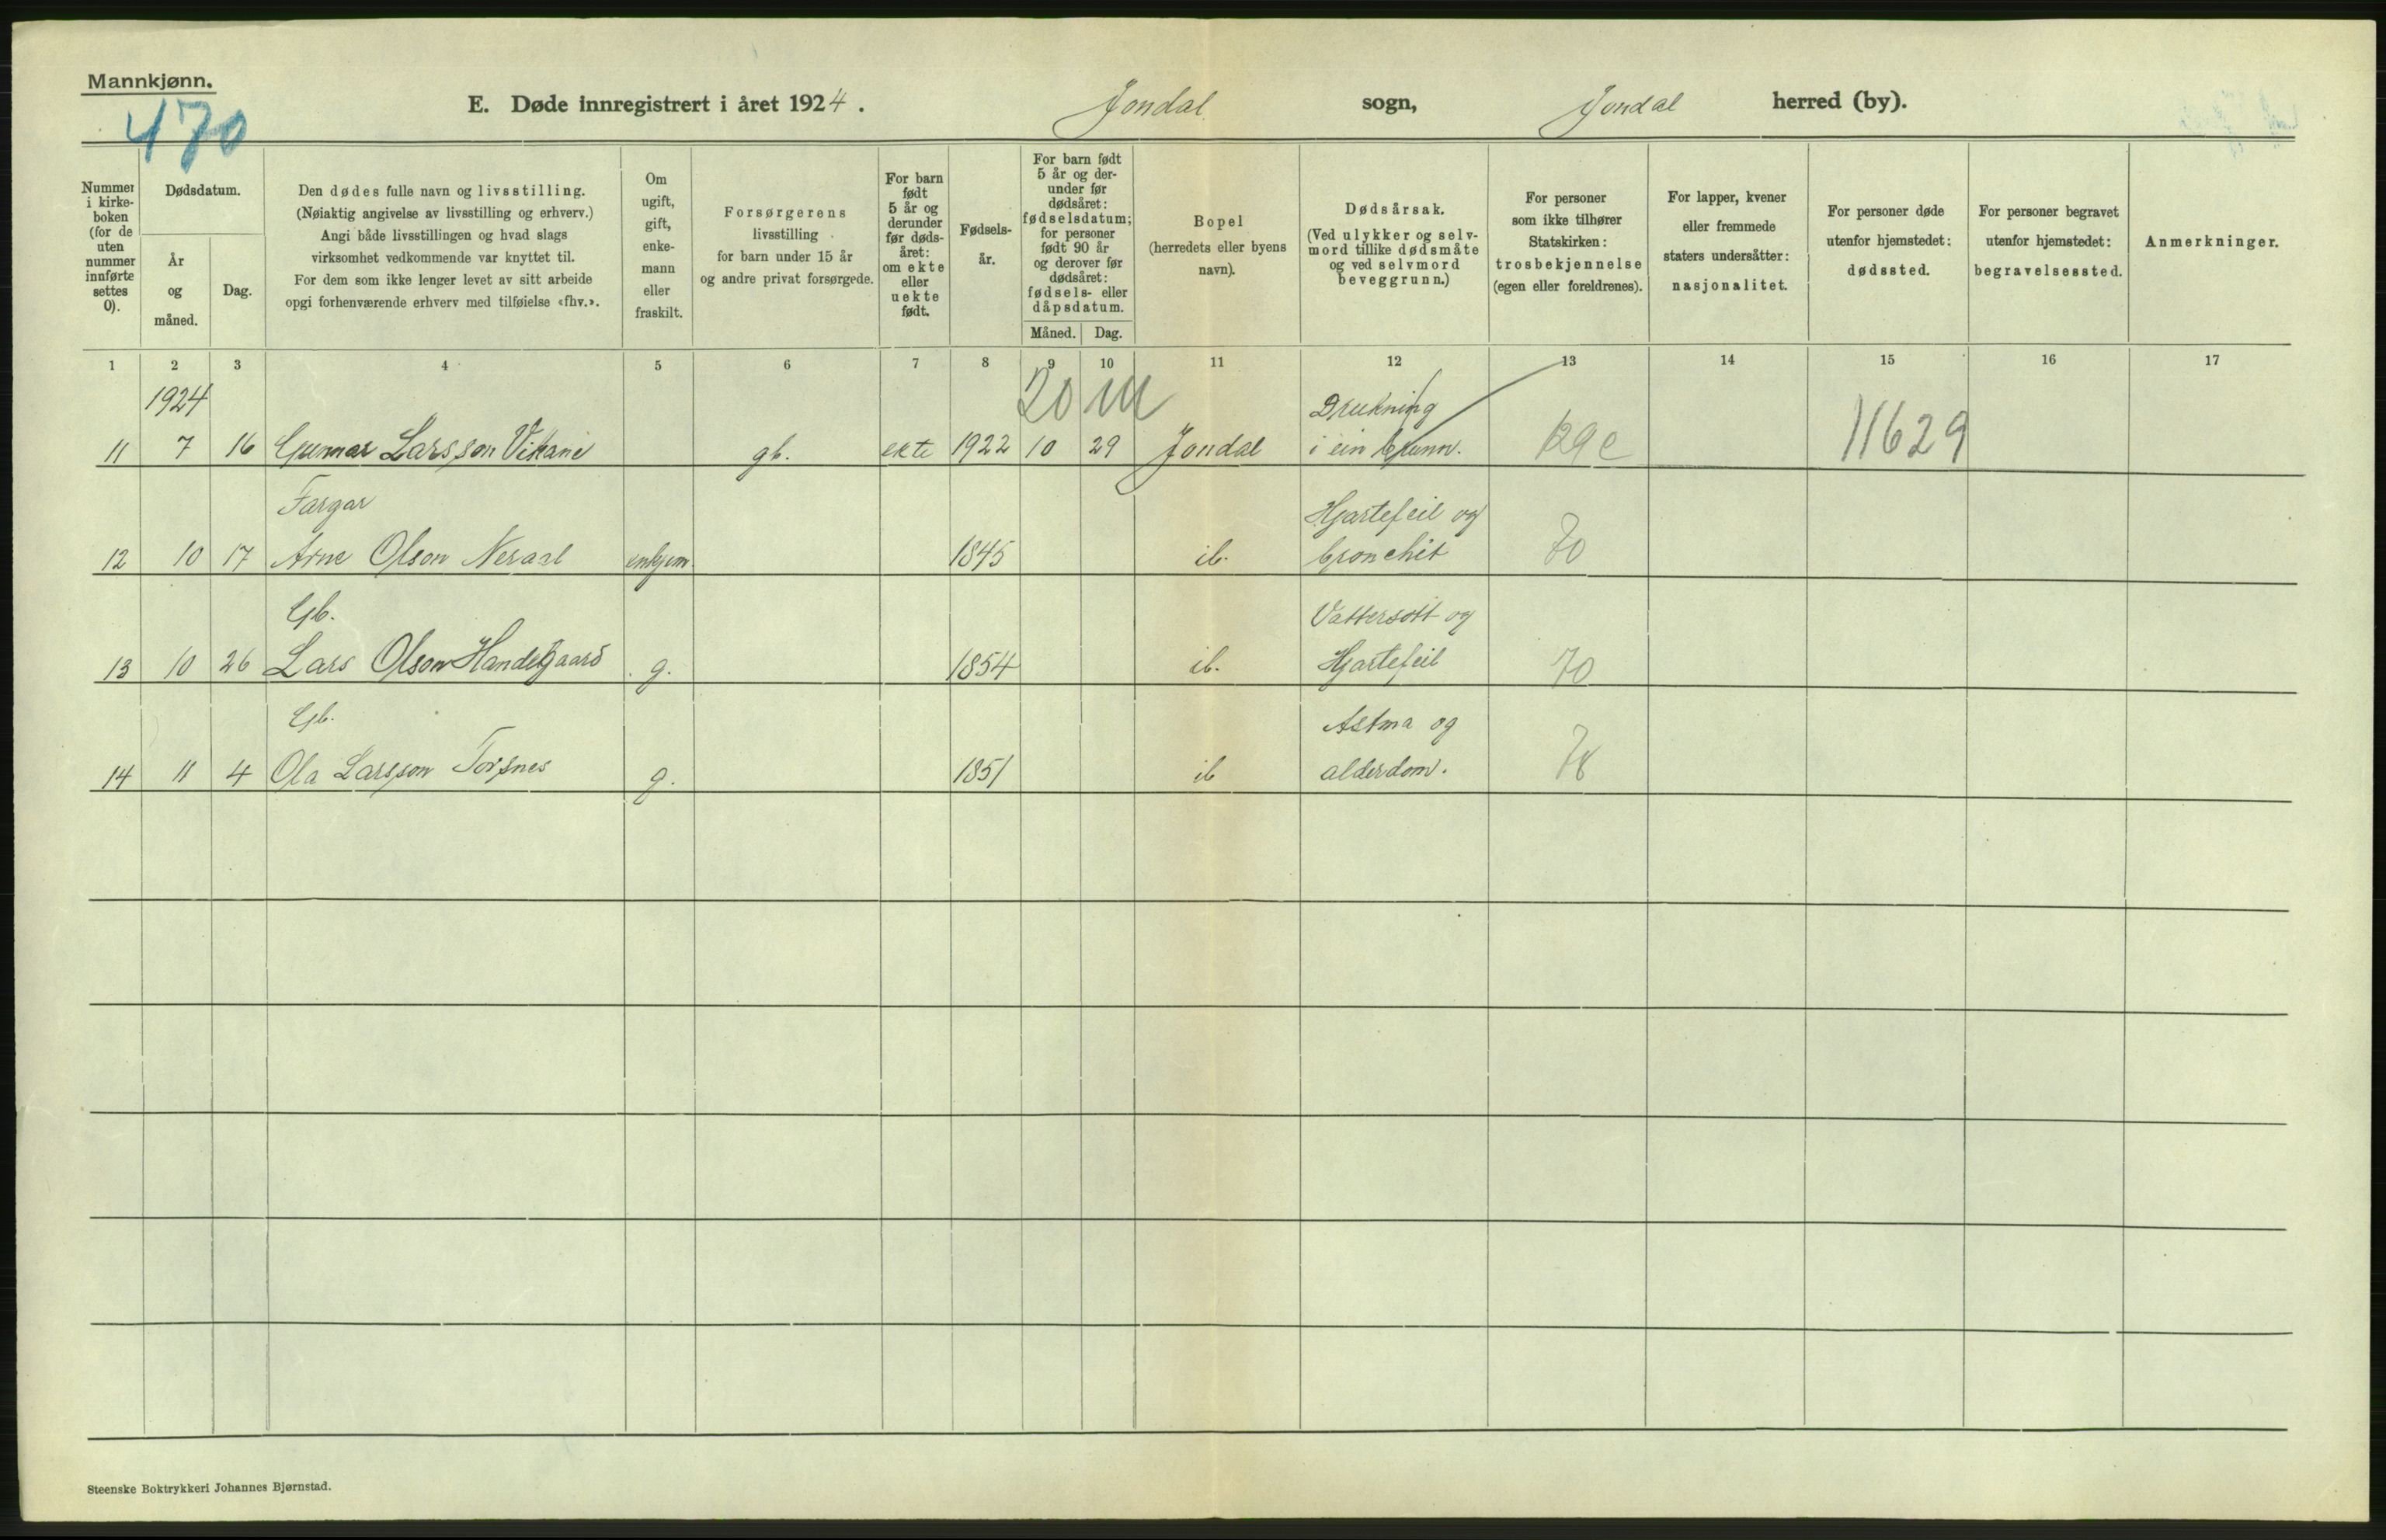 Mannkjønn.
470
E. Døde innregistrert i året 1924. Jondal sogn, Jondal herred (by).
Nummer i kirke-boken (for de uten nummer innførte settes 0).
Dødsdatum.
År og måned.
Dag.
Den dødes fulle navn og livsstilling.
(Nøiaktig angivelse av livsstilling og erhverv.)
Angi både livsstillingen og hvad slags
virksomhet vedkommende var knyttet til.
For dem som ikke lenger levet av sitt arbeide
opgi forhenværende erhverv med tilføielse «fhv.».
Om ugift, gift, enke-mann eller fraskilt.
Forsørgerens
livsstilling
for barn under 15 år
og andre privat forsørgede.
For barn født 5 år og derunder før døds-året: om ekte eller uekte født.
Fødsels-år.
For barn født 5 år og der-under før dødsåret: fødselsdatum; for personer født 90 år og derover før dødsåret: fødsels- eller dåpsdatum.
Måned. Dag.
Bopel
(herredets eller byens
navn).
Dødsårsak.
(Ved ulykker og selv-
mord tillike dødsmåte
og ved selvmord
beveggrunn.)
For personer
som ikke tilhører
Statskirken:
trosbekjennelse
(egen eller foreldrenes).
For lapper, kvener
eller fremmede
staters undersåtter:
nasjonalitet.
For personer døde
utenfor hjemstedet:
dødssted.
For personer begravet
utenfor hjemstedet:
begravelsessted.
Anmerkninger.
1 2 3 4 5 6 7 8 9 10 11 12 13 14 15 16 17
1924 20 m Drukning
11 7 16 Gunnar Larsson Vikane gb. ekte 1922 10 29 Jondal i ein brunn. 11629
Fargar Hjartefeil og
12 10 17 Arne Olson Neraal enkjem 1845 ib. bronchit 70
Gb. Vattersott og
13 10 26 Lars Olson Handegaard g. 1854 ib. Hjartefeil 70
Gb. Astma og
14 11 4 Ola Larsson Torsnes g. 1851 ib alderdom.
Steenske Boktrykkeri Johannes Bjørnstad.